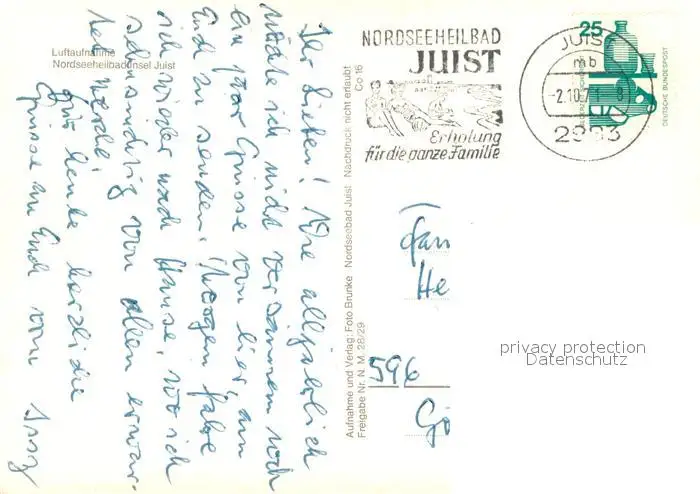 Luftaufnahme
Nordseeheilbadinsel Juist
Ihr Lieben! Wie alljährlich
möchte ich nicht versäumen noch
ein paar Grüsse von hier, an
Euch zu senden. Morgen fahre
ich wieder nach Hause, wo ich
sehnsüchtig von allen erwar-
tet werde!
Für heute herzliche
Grüsse an Euch von
Aufnahme und Verlag: Foto Brunke Nordseebad Juist Nachdruck nicht erlaubt
Freigabe Nr. N. M. 28/29 Co 16
NORDSEEHEILBAD
JUIST
Erholung
für die ganze Familie
JUIST
mb
-2.10.71-8
2983
25
DEUTSCHE BUNDESPOST
Fam
He
596
privacy protection
Datenschutz